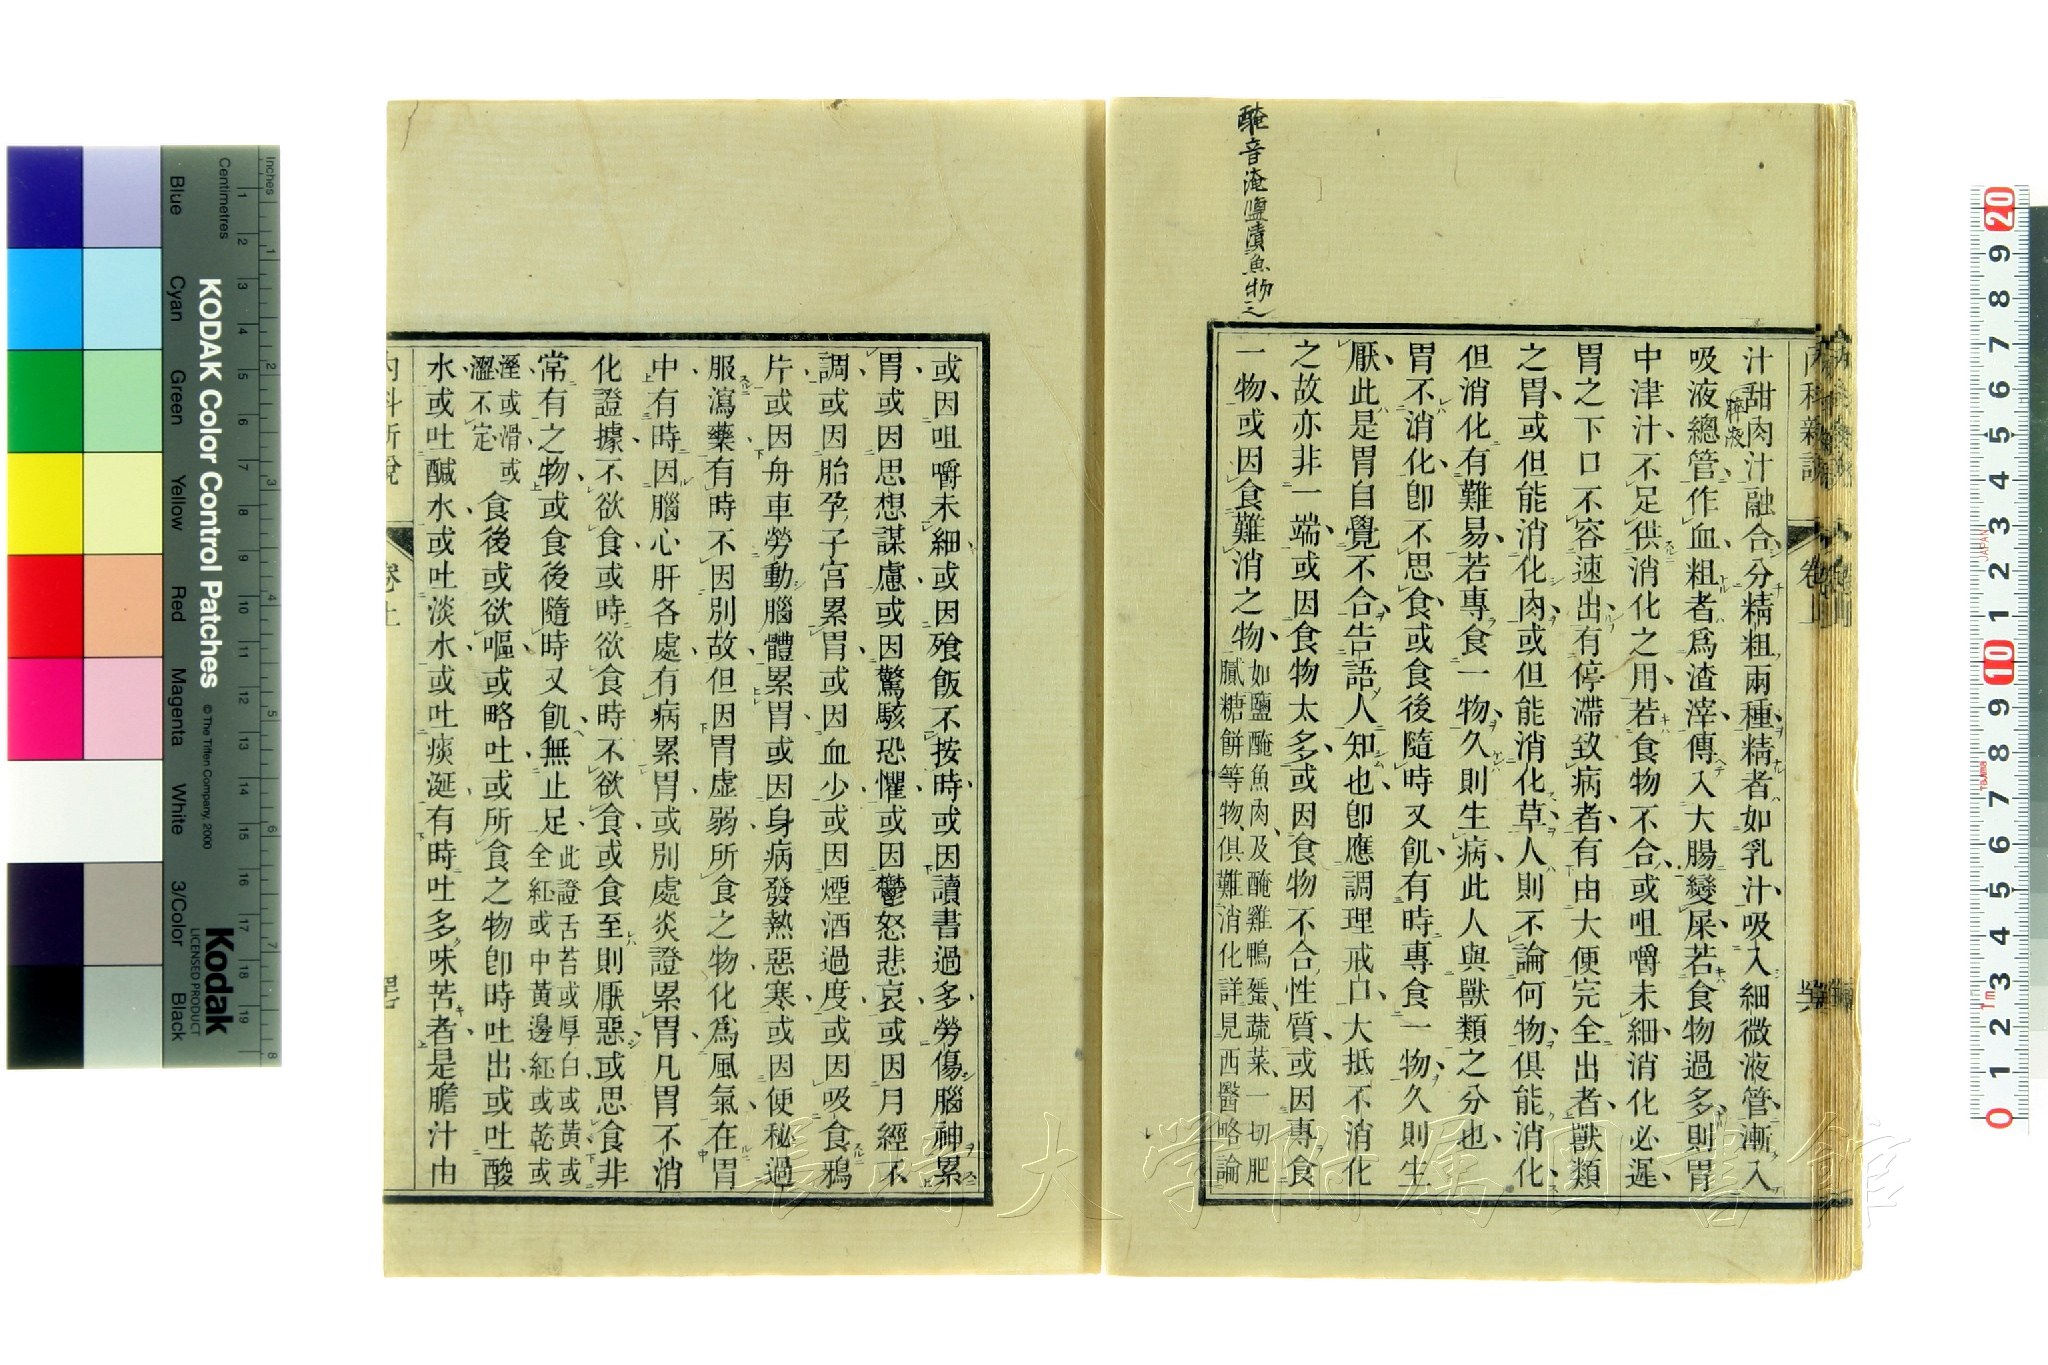 醃音淹鹽漬魚物之
汁甜肉汁融合分精粗兩種精者如乳汁吸入細微液管漸入
吸液總管作血粗者爲渣滓傳入大腸變屎若食物過多則胃
中津汁不足供消化之用若食物不合或咀嚼未細消化必遲
胃之下口不容速出有停滯致病者有由大便完全出者獸類
之胃或但能消化肉或但能消化草人則不論何物俱能消化
但消化有難易若專食一物久則生病此人與獸類之分也
胃不消化卽不思食或食後隨時又飢有時專食一物久則生
厭此是胃自覺不合告語人知也卽應調理戒口大抵不消化
之故亦非一端或因食物太多或因食物不合性質或因專食
一物或因食難消之物如鹽醃魚肉及醃雞鴨蛋蔬菜一切肥
膩糖餅等物俱難消化詳見西醫略論
內科新說
卷上
或因咀嚼未細或因飱飯不按時或因讀書過多勞傷腦神累
胃或因思想謀慮或因驚駭恐懼或因鬱怒悲哀或因月經不
調或因胎孕子宮累胃或因血少或因煙酒過度或因吸食鴉
片或因舟車勞動腦體累胃或因身病發熱惡寒或因便秘過
服瀉藥有時不因別故但因胃虛弱所食之物化爲風氣在胃
中有時因腦心肝各處有病累胃或別處炎證累胃凡胃不消
化證據不欲食或時欲食時不欲食或食至則厭惡或思食非
常有之物或食後隨時又飢無止足此證舌苔或厚白或黃或
全紅或中黃邊紅或乾或
溼或滑或
澀不定食後或欲嘔或略吐或所食之物卽時吐出或吐酸
水或吐鹹水或吐淡水或吐痰涎有時吐多味苦者是膽汁由
內科新說
卷上
KODAK Color Control Patches
© The Tiffen Company, 2000
Kodak
LICENSED PRODUCT
Inches
Centimetres
Blue
Cyan
Green
Yellow
Red
Magenta
White
3/Color
Black
長崎大学附属図書館